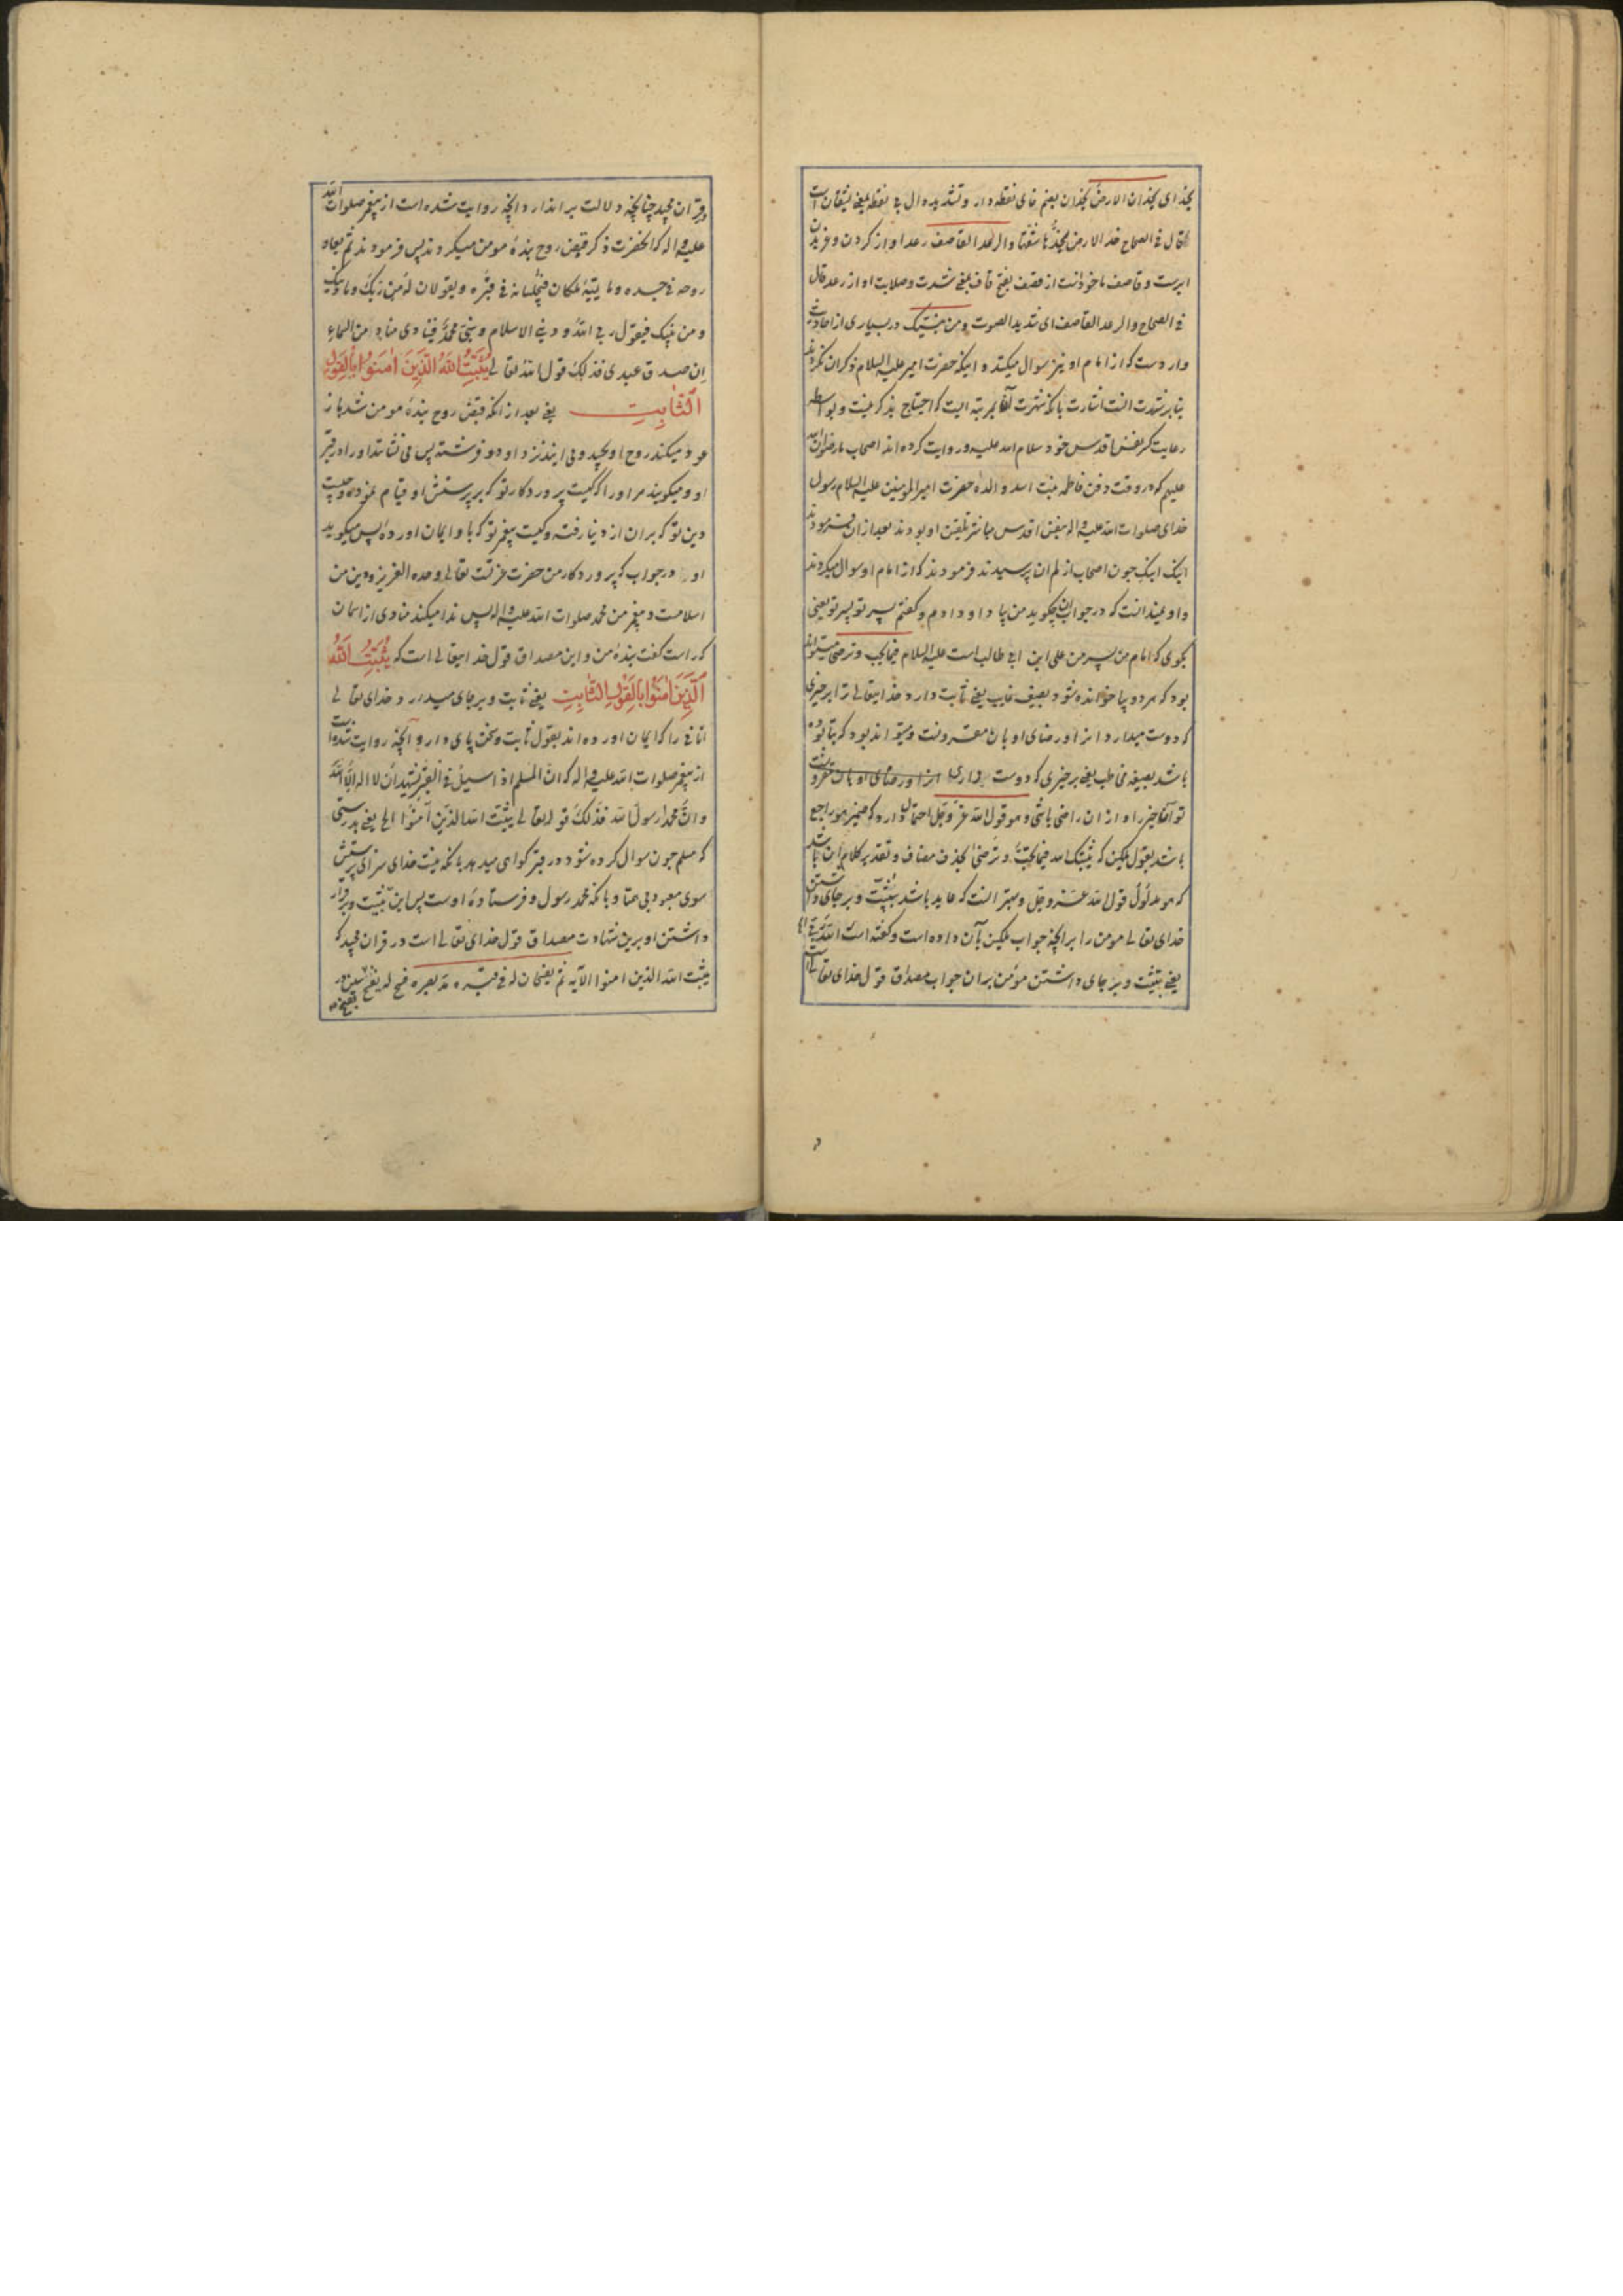 یخذای یخذان الارض یخذان بضم خای نقطه دار و تشدید دال بی نقطه یعنی یشقان است
قال فی الصحاح خذ الارض یخذها شقها والرعد القاصف رعد اواز کردن و غریدن
ابرست و قاصف ماخوذست از قصف بفتح قاف یعنی شدت و صلابت اواز رعد قال
فی الصحاح والرعد القاصف ای شدید الصوت ومن نبیک در بسیاری از احادیث
واردست که از امام او نیز سوال میکنند و اینکه حضرت امیر علیه السلام ذکر ان نکردند
بنابر شهرت انست اشارت بانکه شهرت آن بمرتبه ایست که احتیاج بذکر نیست و بواسطه
رعایت کسر نفس اقدس خود سلام الله علیه و روایت کرده اند اصحاب ما رضوان الله
علیهم که در وقت دفن فاطمه بنت اسد والدهٔ حضرت امیر المؤمنین علیه السلام رسول
خدای صلوات الله علیه واله بنفس اقدس مباشر تلقین او بودند بعد از ان فرمودند
ابنک ابنک چون اصحاب از لم ان پرسیدند فرمودند که از امام او سوال میکردند
و او نمیدانست که در جواب ان چکوید من یاد او دادم و کفتم پسر تو پسر تو یعنی
بکوی که امام من پسر من علی ابن ابی طالب است علیه السلام فیما یحب و ترضی میتواند
بود که هر دو بیا خوانده شود بصیغه غایب یعنی ثابت دارد خدایتعالی ترا بر چیزی
که دوست میدارد انرا و رضای او بان مقرونست و میتواند بود که بتا بوده
باشد بصیغه مخاطب یعنی بر چیزی که دوست داری انرا و رضای او بان مقرونست
تو آنچیز را و از ان راضی باشی و هو قول الله عز وجل احتمال دارد که ضمیر هو راجع
باشد بقول ملکین که یثبتک الله فیما یحب و ترضی بحذف مضاف و تقدیر کلام ان باشد
که هو مدلول قول الله عز وجل و بهتر انست که عاید باشد بتثبیت و بر جای داشتن
خدای تعالی مومن را بر انچه جواب ملکین بآن داده است و کفته است الله ربی الخ
یعنی تثبیت و بر جای داشتن مؤمن بران جواب مصداق قول خدای تعالی است
در قران مجید چنانچه دلالت بر اندارد انچه روایت شده است از پیغمبر صلوات الله
علیه واله که انحضرت ذکر قبض روح بندهٔ مومن میکردند پس فرمودند ثم یعاد
روحه فی جسده و یاتیه ملکان فیجلسانه فی قبره و یقولان له من ربک وما دینک
ومن نبیک فیقول ربی الله و دینی الاسلام و نبیی محمد فینادی مناد من السماء
ان صدق عبدی فذلک قول الله تعالی یُثَبِّتُ اللهُ الَّذِینَ اٰمَنُوا بِالْقَوْلِ
الثَّابِتِ یعنی بعد از انکه قبض روح بندهٔ مومن شد باز
عود میکند روح او بجسد و می ایند نزد او دو فرشته پس می نشانند او را در قبر
او و میکویند مر او را که کیست پروردکار تو که بر پرستش او قیام نمودهٔ و چیست
دین تو که بران از دنیا رفتهٔ و کیست پیغمبر تو که باو ایمان اوردهٔ پس میکوید
او در جواب که پروردکار من حضرت عزتست تعالی وحده العزیز و دین من
اسلامست و پیغمبر من محمد صلوات الله علیه واله پس ندا میکند منادی از اسمان
که راست کفت بندهٔ من و این مصداق قول خدایتعالی است که یُثَبِّتُ اللهُ
الَّذِینَ اٰمَنُوا بِالْقَوْلِ الثَّابِتِ یعنی ثابت و برجای میدارد خدای تعالی
انانی را که ایمان اورده اند بقول ثابت و سخن پای دار و آنچه روایت شده است
از پیغمبر صلوات الله علیه واله که ان المسلم اذا سئل فی القبر یشهد ان لا اله الا الله
وان محمدا رسول الله فذلک قوله تعالی یثبت الله الذین آمنوا الخ یعنی بدرستی
که مسلم چون سوال کرده شود در قبر کواهی میدهد بانکه نیست خدای سزای پرستش
سوی معبود بی همتا و بانکه محمد رسول و فرستادهٔ اوست پس این تثبیت و برقرار
داشتن او برین شهادت مصداق قول خدای تعالی است در قران مجید که
یثبت الله الذین امنوا الآیه ثم یفسحان له فی قبره مد بصره فسح له یفسح بسین و
بفتح